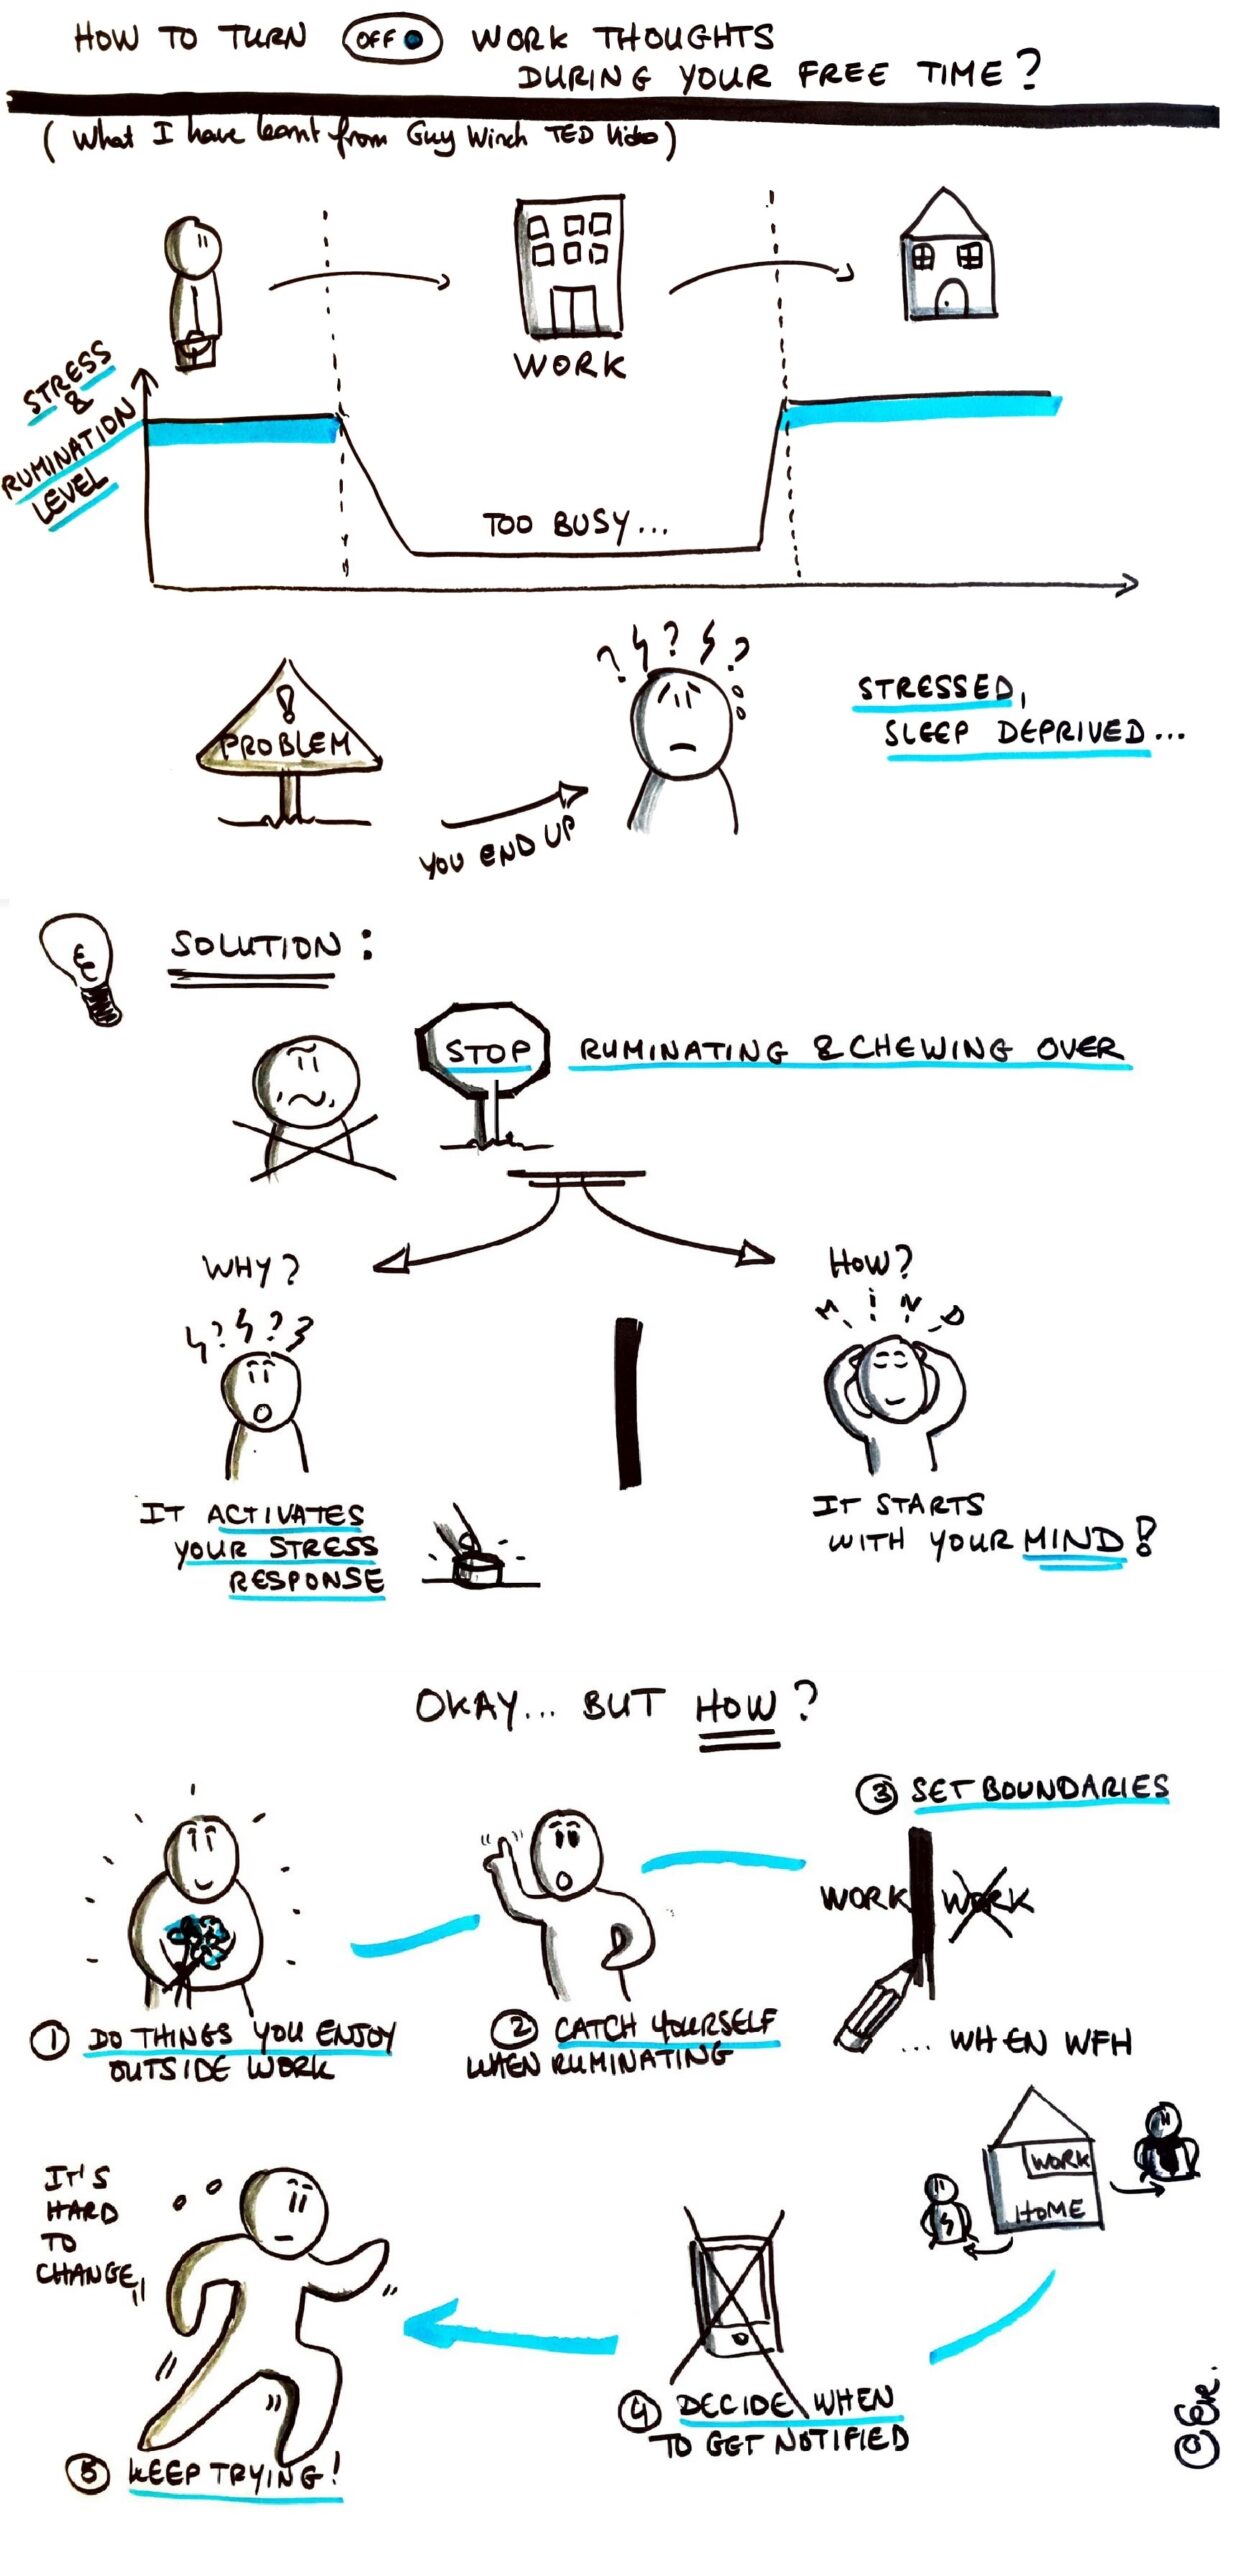 HOW TO TURN OFF WORK THOUGHTS
DURING YOUR FREE TIME?
(What I have learnt from Guy Winch TED Video)
WORK
STRESS
&
RUMINATION
LEVEL
TOO BUSY...
!
PROBLEM
? ? ?
YOU END UP
STRESSED,
SLEEP DEPRIVED...
SOLUTION:
STOP RUMINATING & CHEWING OVER
WHY?
? ?
IT ACTIVATES
YOUR STRESS
RESPONSE
HOW?
MIND
IT STARTS
WITH YOUR MIND!
OKAY... BUT HOW?
1 DO THINGS YOU ENJOY
OUTSIDE WORK
2 CATCH YOURSELF
WHEN RUMINATING
3 SET BOUNDARIES
WORK WORK
... WHEN WFH
WORK
HOME
4 DECIDE WHEN
TO GET NOTIFIED
IT'S
HARD
TO
CHANGE
5 KEEP TRYING!